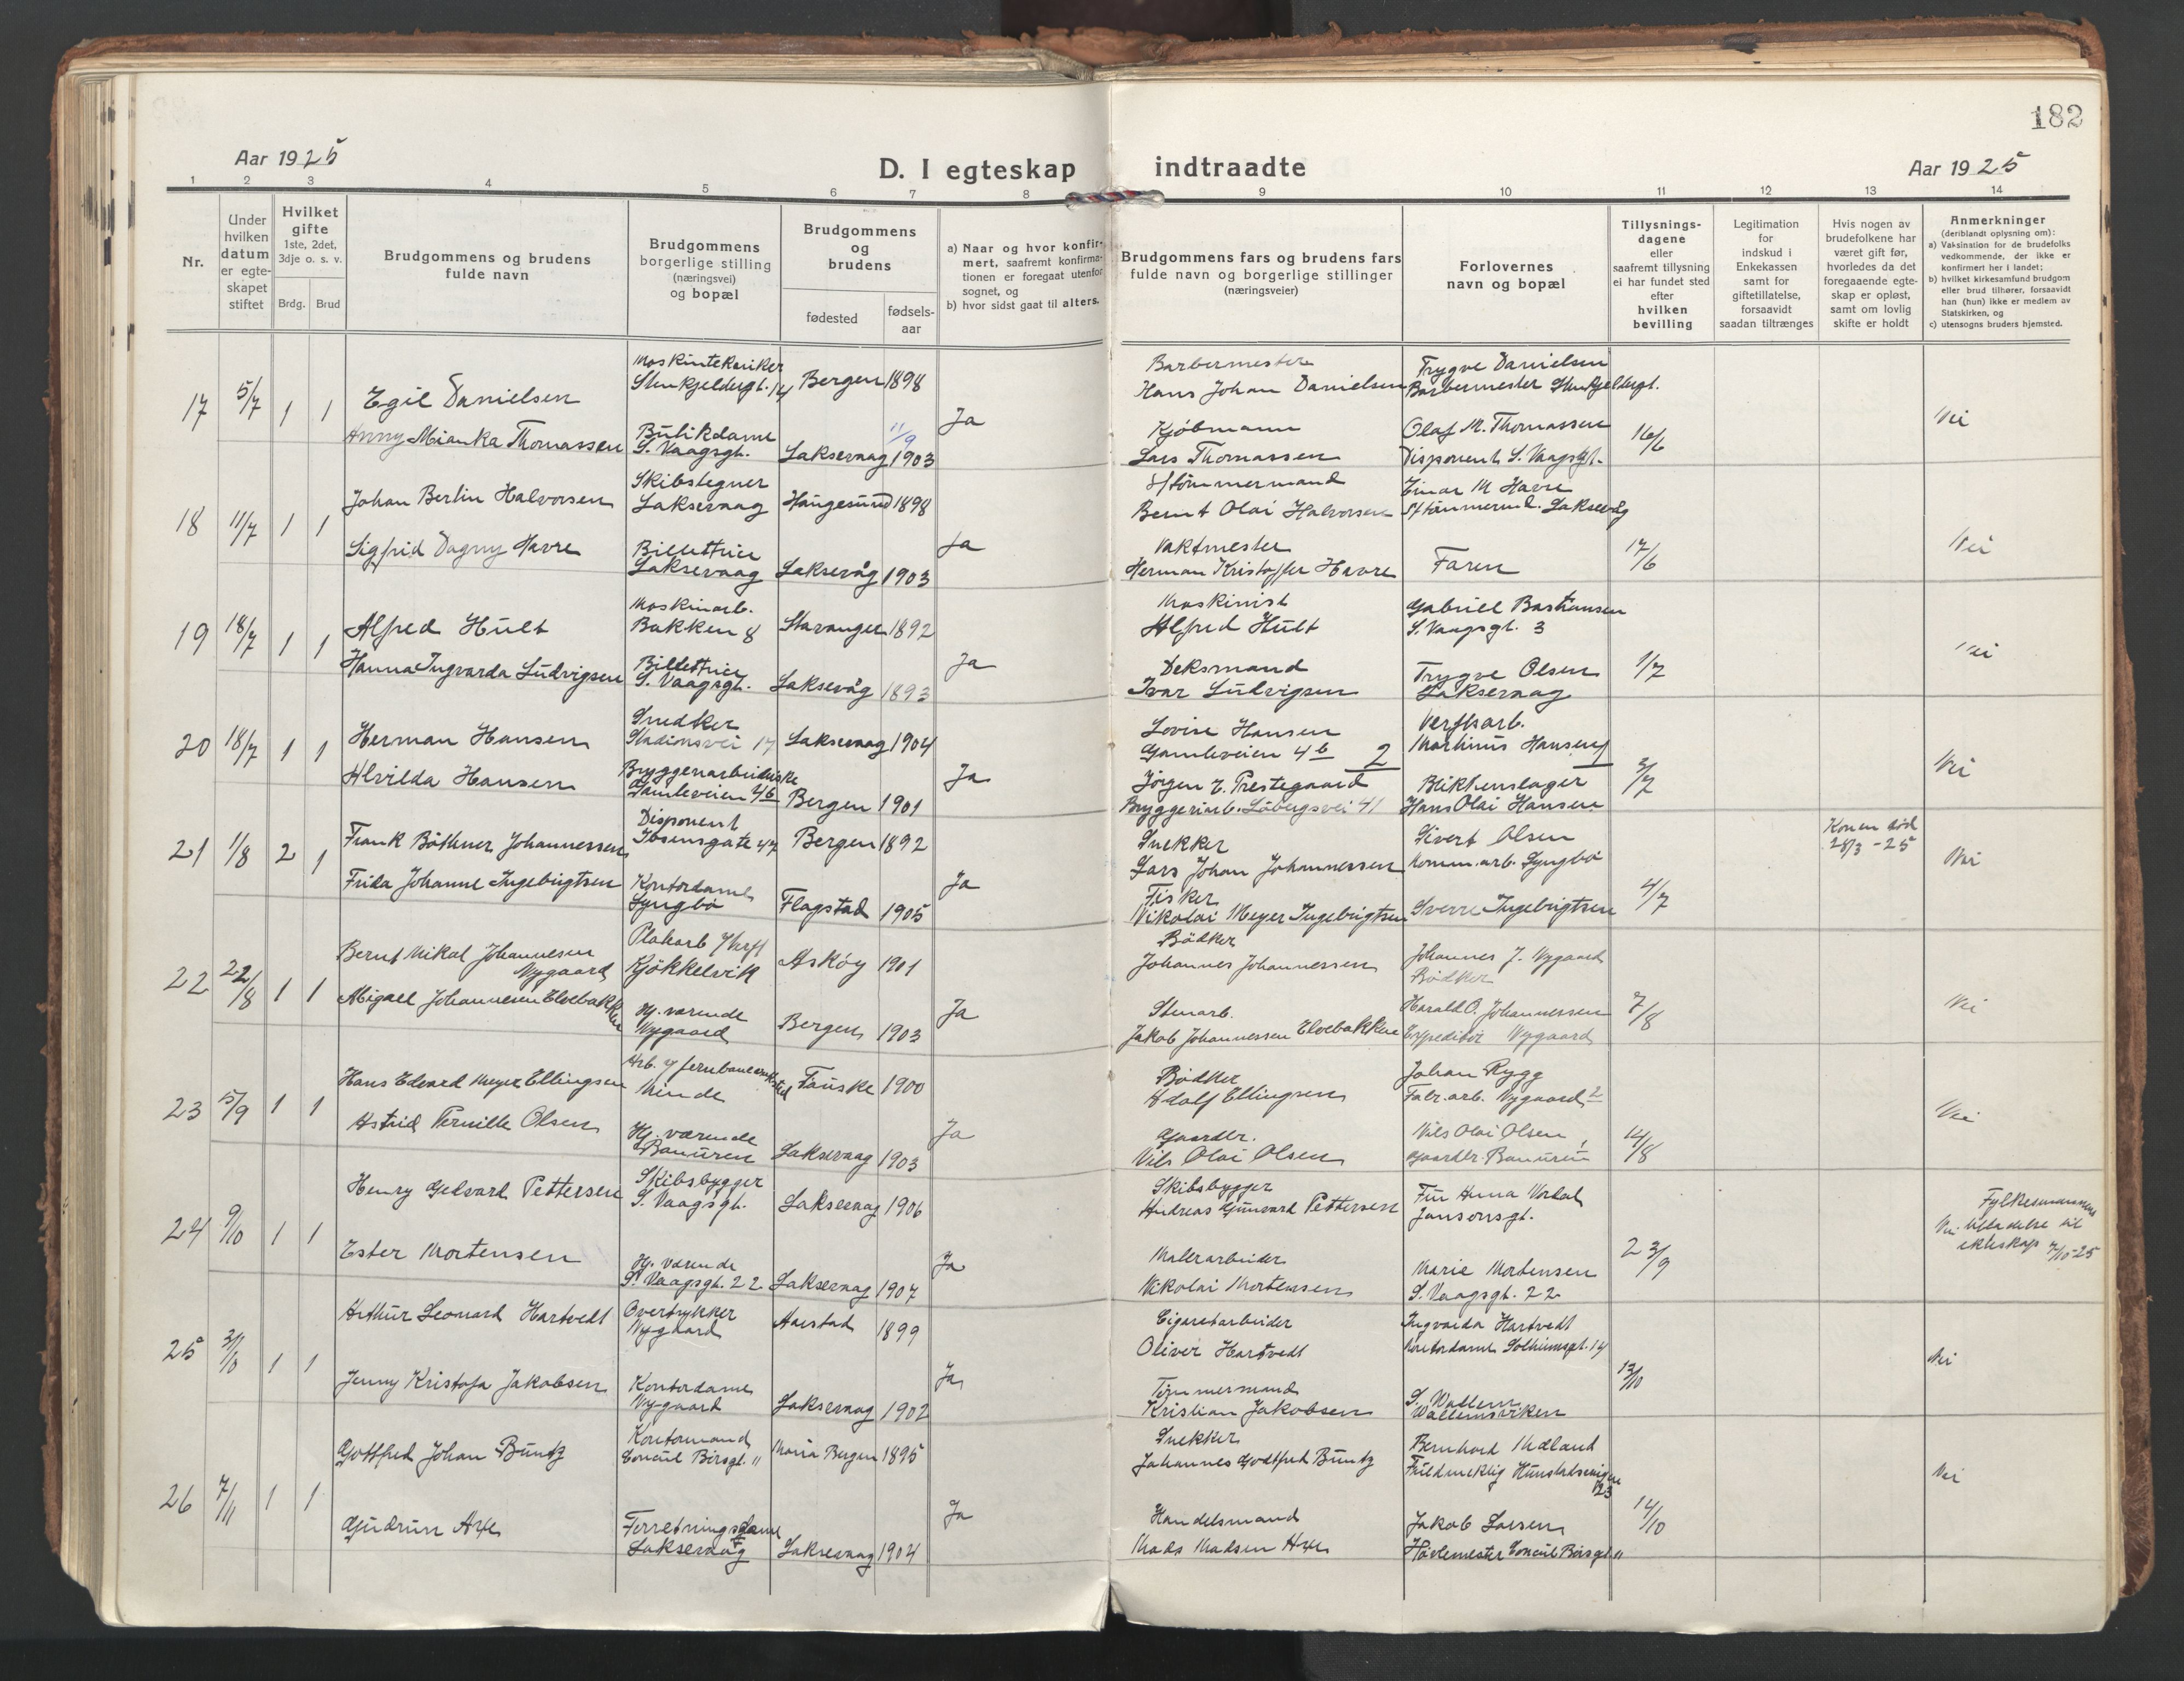 182
Aar 1925
D. I egteskap indtraadte
Aar 1925
1 2 3 4 5 6 7 8 9 10 11 12 13 14
Nr.
Under hvilken datum er egteskapet stiftet
Hvilket gifte 1ste, 2det, 3dje o. s. v.
Brdg. Brud
Brudgommens og brudens fulde navn
Brudgommens borgerlige stilling (næringsvei) og bopæl
Brudgommens og brudens
fødested
fødselsaar
a) Naar og hvor konfirmert, saafremt konfirmationen er foregaat utenfor sognet, og
b) hvor sidst gaat til alters.
Brudgommens fars og brudens fars fulde navn og borgerlige stillinger (næringsveier)
Forlovernes navn og bopæl
Tillysningsdagene eller saafremt tillysning ei har fundet sted efter hvilken bevilling
Legitimation for indskud i Enkekassen samt for giftetillatelse, forsaavidt saadan tiltrænges
Hvis nogen av brudefolkene har været gift før, hvorledes da det foregaaende egteskap er opløst, samt om lovlig skifte er holdt
Anmerkninger (deriblandt oplysning om):
a) Vaksination for de brudefolks vedkommende, der ikke er konfirmert her i landet;
b) hvilket kirkesamfund brudgom eller brud tilhører, forsaavidt han (hun) ikke er medlem av Statskirken, og
c) utensogns bruders hjemsted.
17 5/7 1 1 Egil Danielsen Maskintekniker Stenkjeldergt. 14 Bergen 1898 Barbermester Hans Johan Danielsen Trygve Danielsen Barbermester Stenkjeldergt.
Anny Mianka Thomassen Butikdame S. Vaagsgt. Laksevaag 11/9 1903 Ja Kjøbmann Lars Thomassen Olaf M. Thomassen Disponent S. Vaagsgt. 16/6 Nei
18 11/7 1 1 Johan Berlin Halvorsen Skibstegner Laksevaag Haugesund 1898 Støimmermand Bernt Olai Halvorsen Einar M Havre Laksevåg
Sigfrid Dagny Havre Billettrice Laksevaag Laksevåg 1903 Ja Vaktmester Herman Kristoffer Havre Faren 17/6 Nei
19 18/7 1 1 Alfred Hult Maskinarb. Bakken 8 Stavanger 1892 Maskinist Alfred Hult Gabriel Bastiansen S. Vaagsgt. 3
Hanna Ingvarda Ludvigsen Billettrice S. Vaagsgt. Laksevåg 1893 Ja Deksmand Ivar Ludvigsen Trygve Olsen Laksevaag 1/7 Nei
20 18/7 1 1 Herman Hansen Snedker Stadionsvei 17 Laksevaag 1904 Lovise Hansen Gamleveien 4b 2 Verftsarb. Martinus Hansen
Alvilda Hansen Bryggeriarbeiderske Gamleveien 4b Bergen 1901 Ja Jørgen E. Prestegaard Bryggeriarb. Løbergsvei 41 Blikkenslager Hans Olai Hansen 3/7 Nei
21 1/8 2 1 Frank Bøthner Johannessen Disponent Ibsensgate 47 Bergen 1892 Snekker Lars Johan Johannessen Sivert Olsen Komm.arb. Lyngbø Konen død 28/3 -25
Frida Johanne Ingebrigtsen Kontordame Lyngbø Flagstad 1905 Ja Fisker Nikolai Meyer Ingebrigtsen Sverre Ingebrigtsen 4/7 Nei
22 22/8 1 1 Bernt Mikal Johannesen Nygaard Kjøkkelvik Askøy 1901 Bødker Johannes Johannessen Johannes J. Nygaard Bødker
Abigael Johannesen Elvebakken Hj. værende Nygaard Bergen 1903 Ja Stenarb. Jakob Johannessen Elvebakken Harald O. Johannessen Expeditør Nygaard 7/8 Nei
23 5/9 1 1 Hans Edvard Meyer Ellingsen Arb. v/ jernbaneverksted Minde Fauske 1900 Bødker Adolf Ellingsen Johan Rygg Fabr.arb. Nygaard 2
Astrid Pernille Olsen Hj. værende Bauuren Laksevaag 1903 Ja Gaardbr. Nils Olai Olsen Nils Olai Olsen Gaardbr. 14/8 Nei
24 9/10 1 1 Henry Gedvard Pettersen Skibsbygger S. Vaagsgt. Laksevaag 1906 Skibsbygger Andreas Gunvard Pettersen Fru Anna Jansonsgt.
Ester Mortensen Hj. værende S. Vaagsgt. 22 Laksevaag 1907 Ja Malerarbeider Nikolai Mortensen Marie Mortensen S. Vaagsgt. 22 23/9 Nei Fylkesmannens tilladelse til ekteskap 7/10-25
25 31/10 1 1 Arthur Leonard Hartvedt Overtrykker Nygaard Aarstad 1899 Cigaretarbeider Oliver Hartvedt Ingvarda Hartvedt Kontordame Solheimsgt. 14
Jenny Kristofa Jakobsen Kontordame Nygaard Laksevaag 1902 Ja Tømmermand Kristian Jakobsen S. Wallem Wallemsviken 13/10 Nei
26 7/11 1 1 Gottfred Johan Buntz Kontormand Concul Børsgt. 11 Maria Bergen 1895 Snekker Johannes Godtfred Buntz Bernhard Mæland Fuldmektig 123
Gudrun Axe Forretningsdame Laksevaag Laksevaag 1904 Ja Handelsmand Mads Madsen Axe Jakob Larsen Høvlemester Concul Børsgt. 11 14/10 Nei